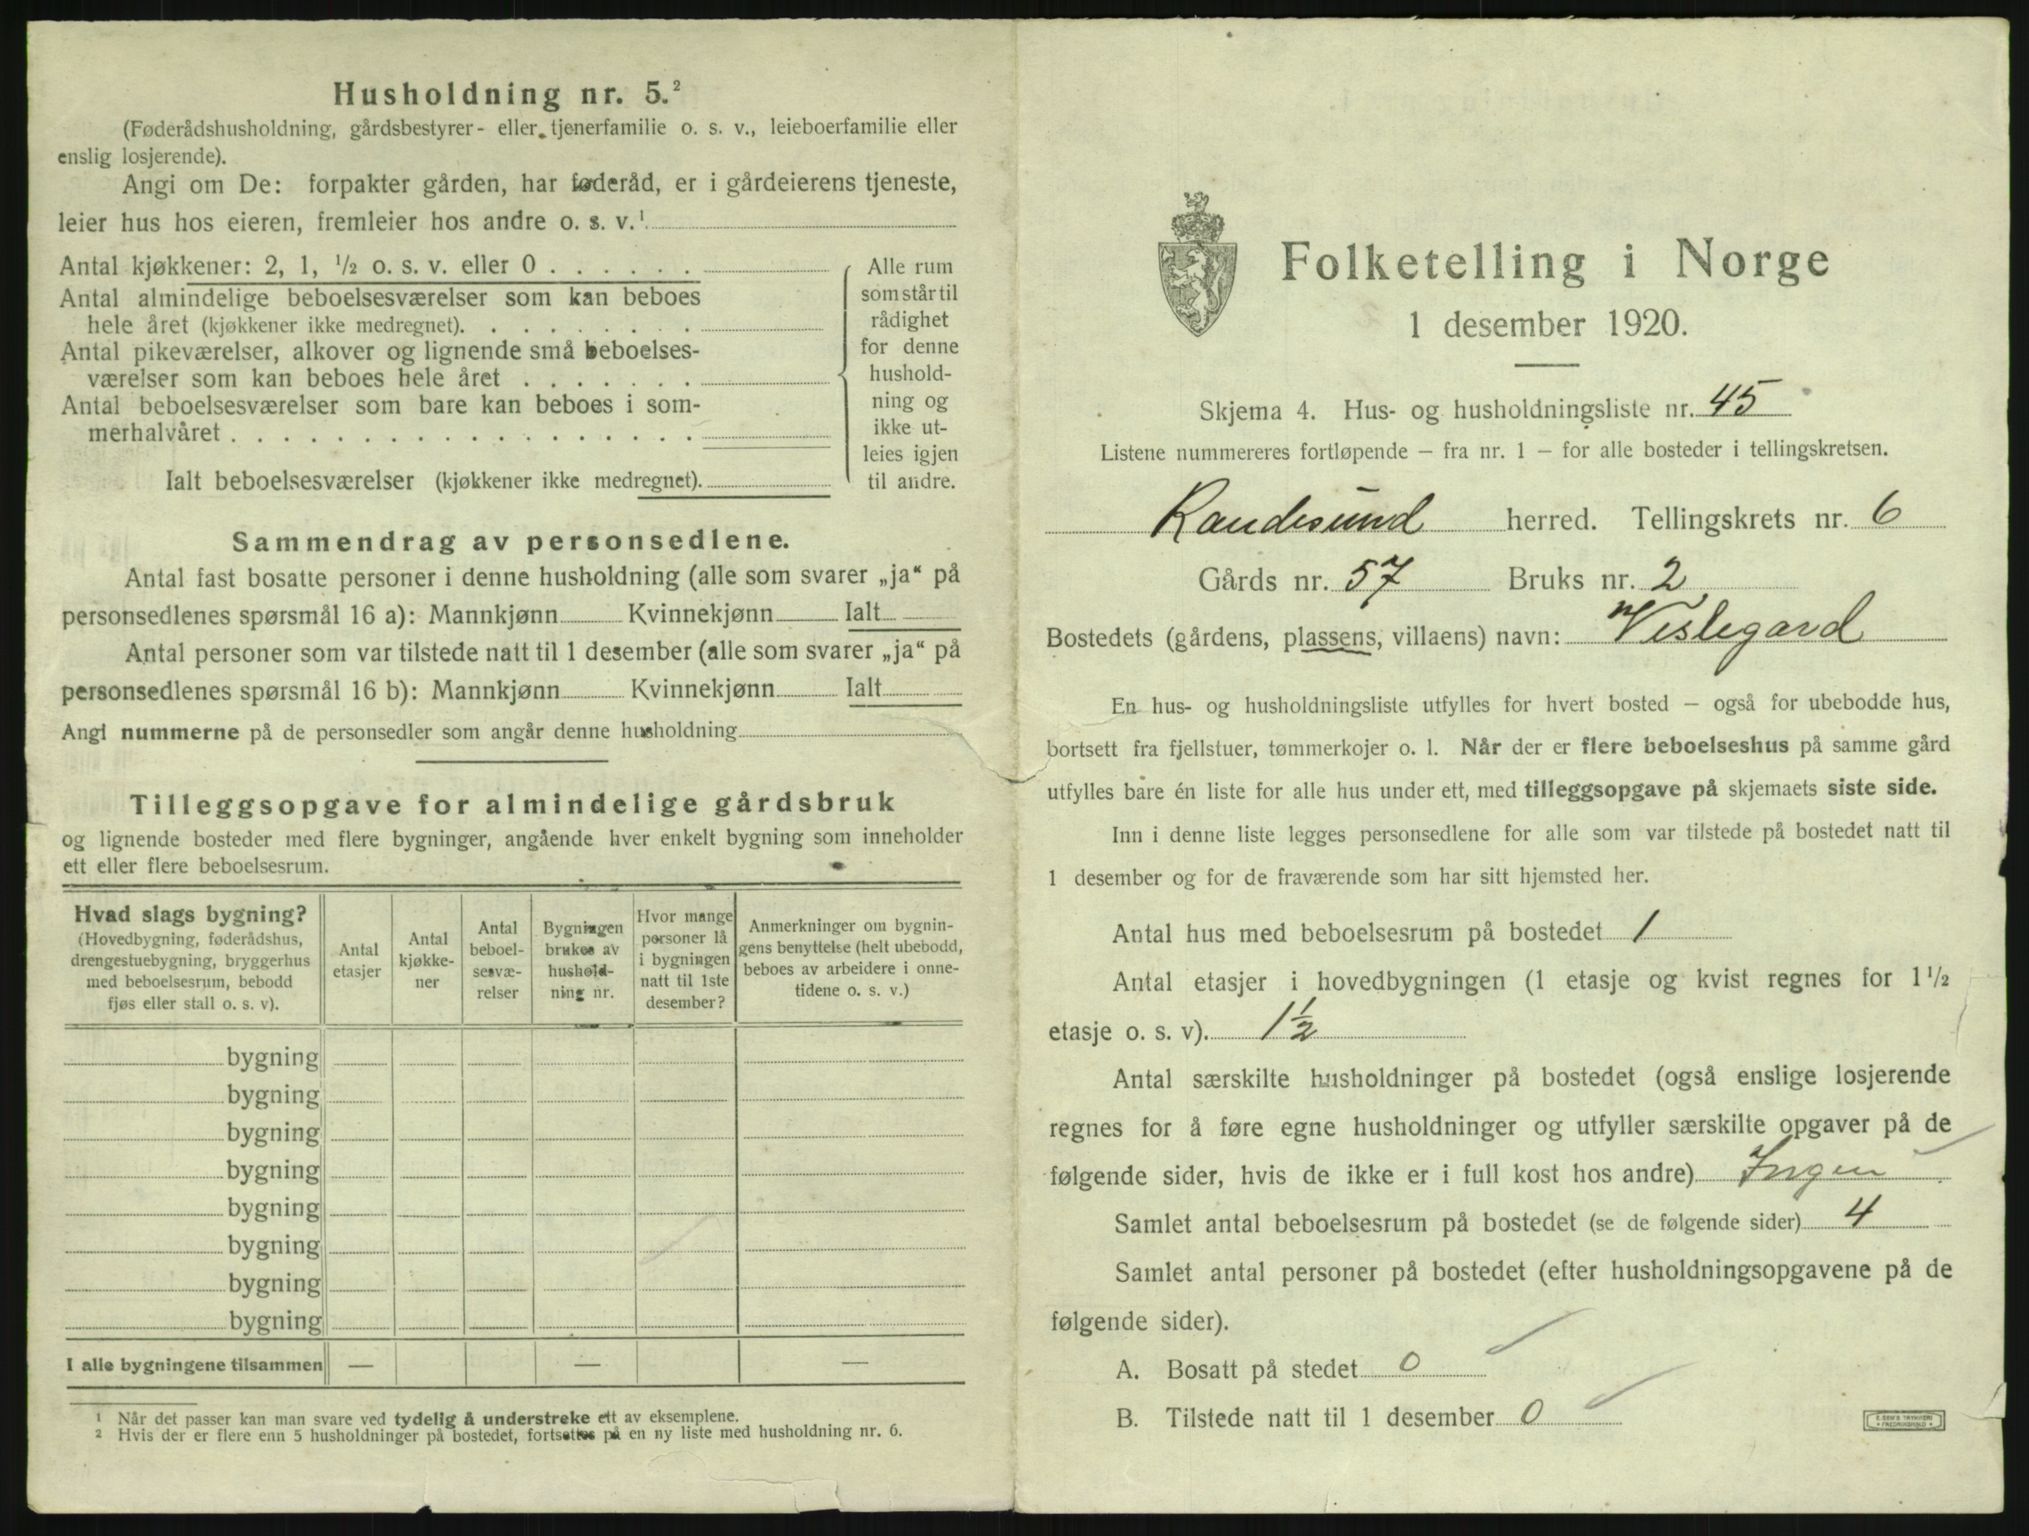 Husholdning nr. 5.²
(Føderådshusholdning, gårdsbestyrer- eller tjenerfamilie o. s. v., leieboerfamilie eller
enslig losjerende).
Angi om De: forpakter gården, har føderåd, er i gårdeierens tjeneste,
leier hus hos eieren, fremleier hos andre o. s. v.¹
Antal kjøkkener: 2, 1, ½ o. s. v. eller 0 . . . . . .
Antal almindelige beboelsesværelser som kan beboes
hele året (kjøkkener ikke medregnet). . . . . . . . .
Antal pikeværelser, alkover og lignende små beboelses-
værelser som kan beboes hele året . . . . . . .
Antal beboelsesværelser som bare kan beboes i som-
merhalvåret . . . . . . . . . . . . . . . . . .
Ialt beboelsesværelser (kjøkkener ikke medregnet).
Alle rum
som står til
rådighet
for denne
hushold-
ning og
ikke ut-
leies igjen
til andre.
Sammendrag av personsedlene.
Antal fast bosatte personer i denne husholdning (alle som svarer „ja“ på
personsedlenes spørsmål 16 a): Mannkjønn Kvinnekjønn Ialt
Antal personer som var tilstede natt til 1 desember (alle som svarer „ja“ på
personsedlenes spørsmål 16 b): Mannkjønn Kvinnekjønn Ialt
Angi nummerne på de personsedler som angår denne husholdning
Tilleggsopgave for almindelige gårdsbruk
og lignende bosteder med flere bygninger, angående hver enkelt bygning som inneholder
ett eller flere beboelsesrum.
Hvad slags bygning?
(Hovedbygning, føderådshus,
drengestuebygning, bryggerhus
med beboelsesrum, bebodd
fjøs eller stall o. s. v).
Antal
etasjer
Antal
kjøkke-
ner
Antal
beboel-
sesvæ-
relser
Bygningen
brukes av
hushold-
ning nr.
Hvor mange
personer lå
i bygningen
natt til 1ste
desember?
Anmerkninger om bygnin-
gens benyttelse (helt ubebodd,
beboes av arbeidere i onne-
tidene o. s. v.)
bygning
bygning
bygning
bygning
bygning
bygning
bygning
bygning
I alle bygningene tilsammen — — —
¹ Når det passer kan man svare ved tydelig å understreke ett av eksemplene.
² Hvis der er flere enn 5 husholdninger på bostedet, fortsettes på en ny liste med husholdning nr. 6.
Folketelling i Norge
1 desember 1920.
Skjema 4. Hus- og husholdningsliste nr. 45
Listene nummereres fortløpende – fra nr. 1 – for alle bosteder i tellingskretsen.
Randesund herred. Tellingskrets nr. 6
Gårds nr. 57 Bruks nr. 2
Bostedets (gårdens, plassens, villaens) navn: Veslegard
En hus- og husholdningsliste utfylles for hvert bosted – også for ubebodde hus,
bortsett fra fjellstuer, tømmerkojer o. l. Når der er flere beboelseshus på samme gård
utfylles bare én liste for alle hus under ett, med tilleggsopgave på skjemaets siste side.
Inn i denne liste legges personsedlene for alle som var tilstede på bostedet natt til
1 desember og for de fraværende som har sitt hjemsted her.
Antal hus med beboelsesrum på bostedet 1
Antal etasjer i hovedbygningen (1 etasje og kvist regnes for 1 ½
etasje o. s. v). 1½
Antal særskilte husholdninger på bostedet (også enslige losjerende
regnes for å føre egne husholdninger og utfyller særskilte opgaver på de
følgende sider, hvis de ikke er i full kost hos andre) Ingen
Samlet antal beboelsesrum på bostedet (se de følgende sider) 4
Samlet antal personer på bostedet (efter husholdningsopgavene på de
følgende sider).
A. Bosatt på stedet 0
B. Tilstede natt til 1 desember 0